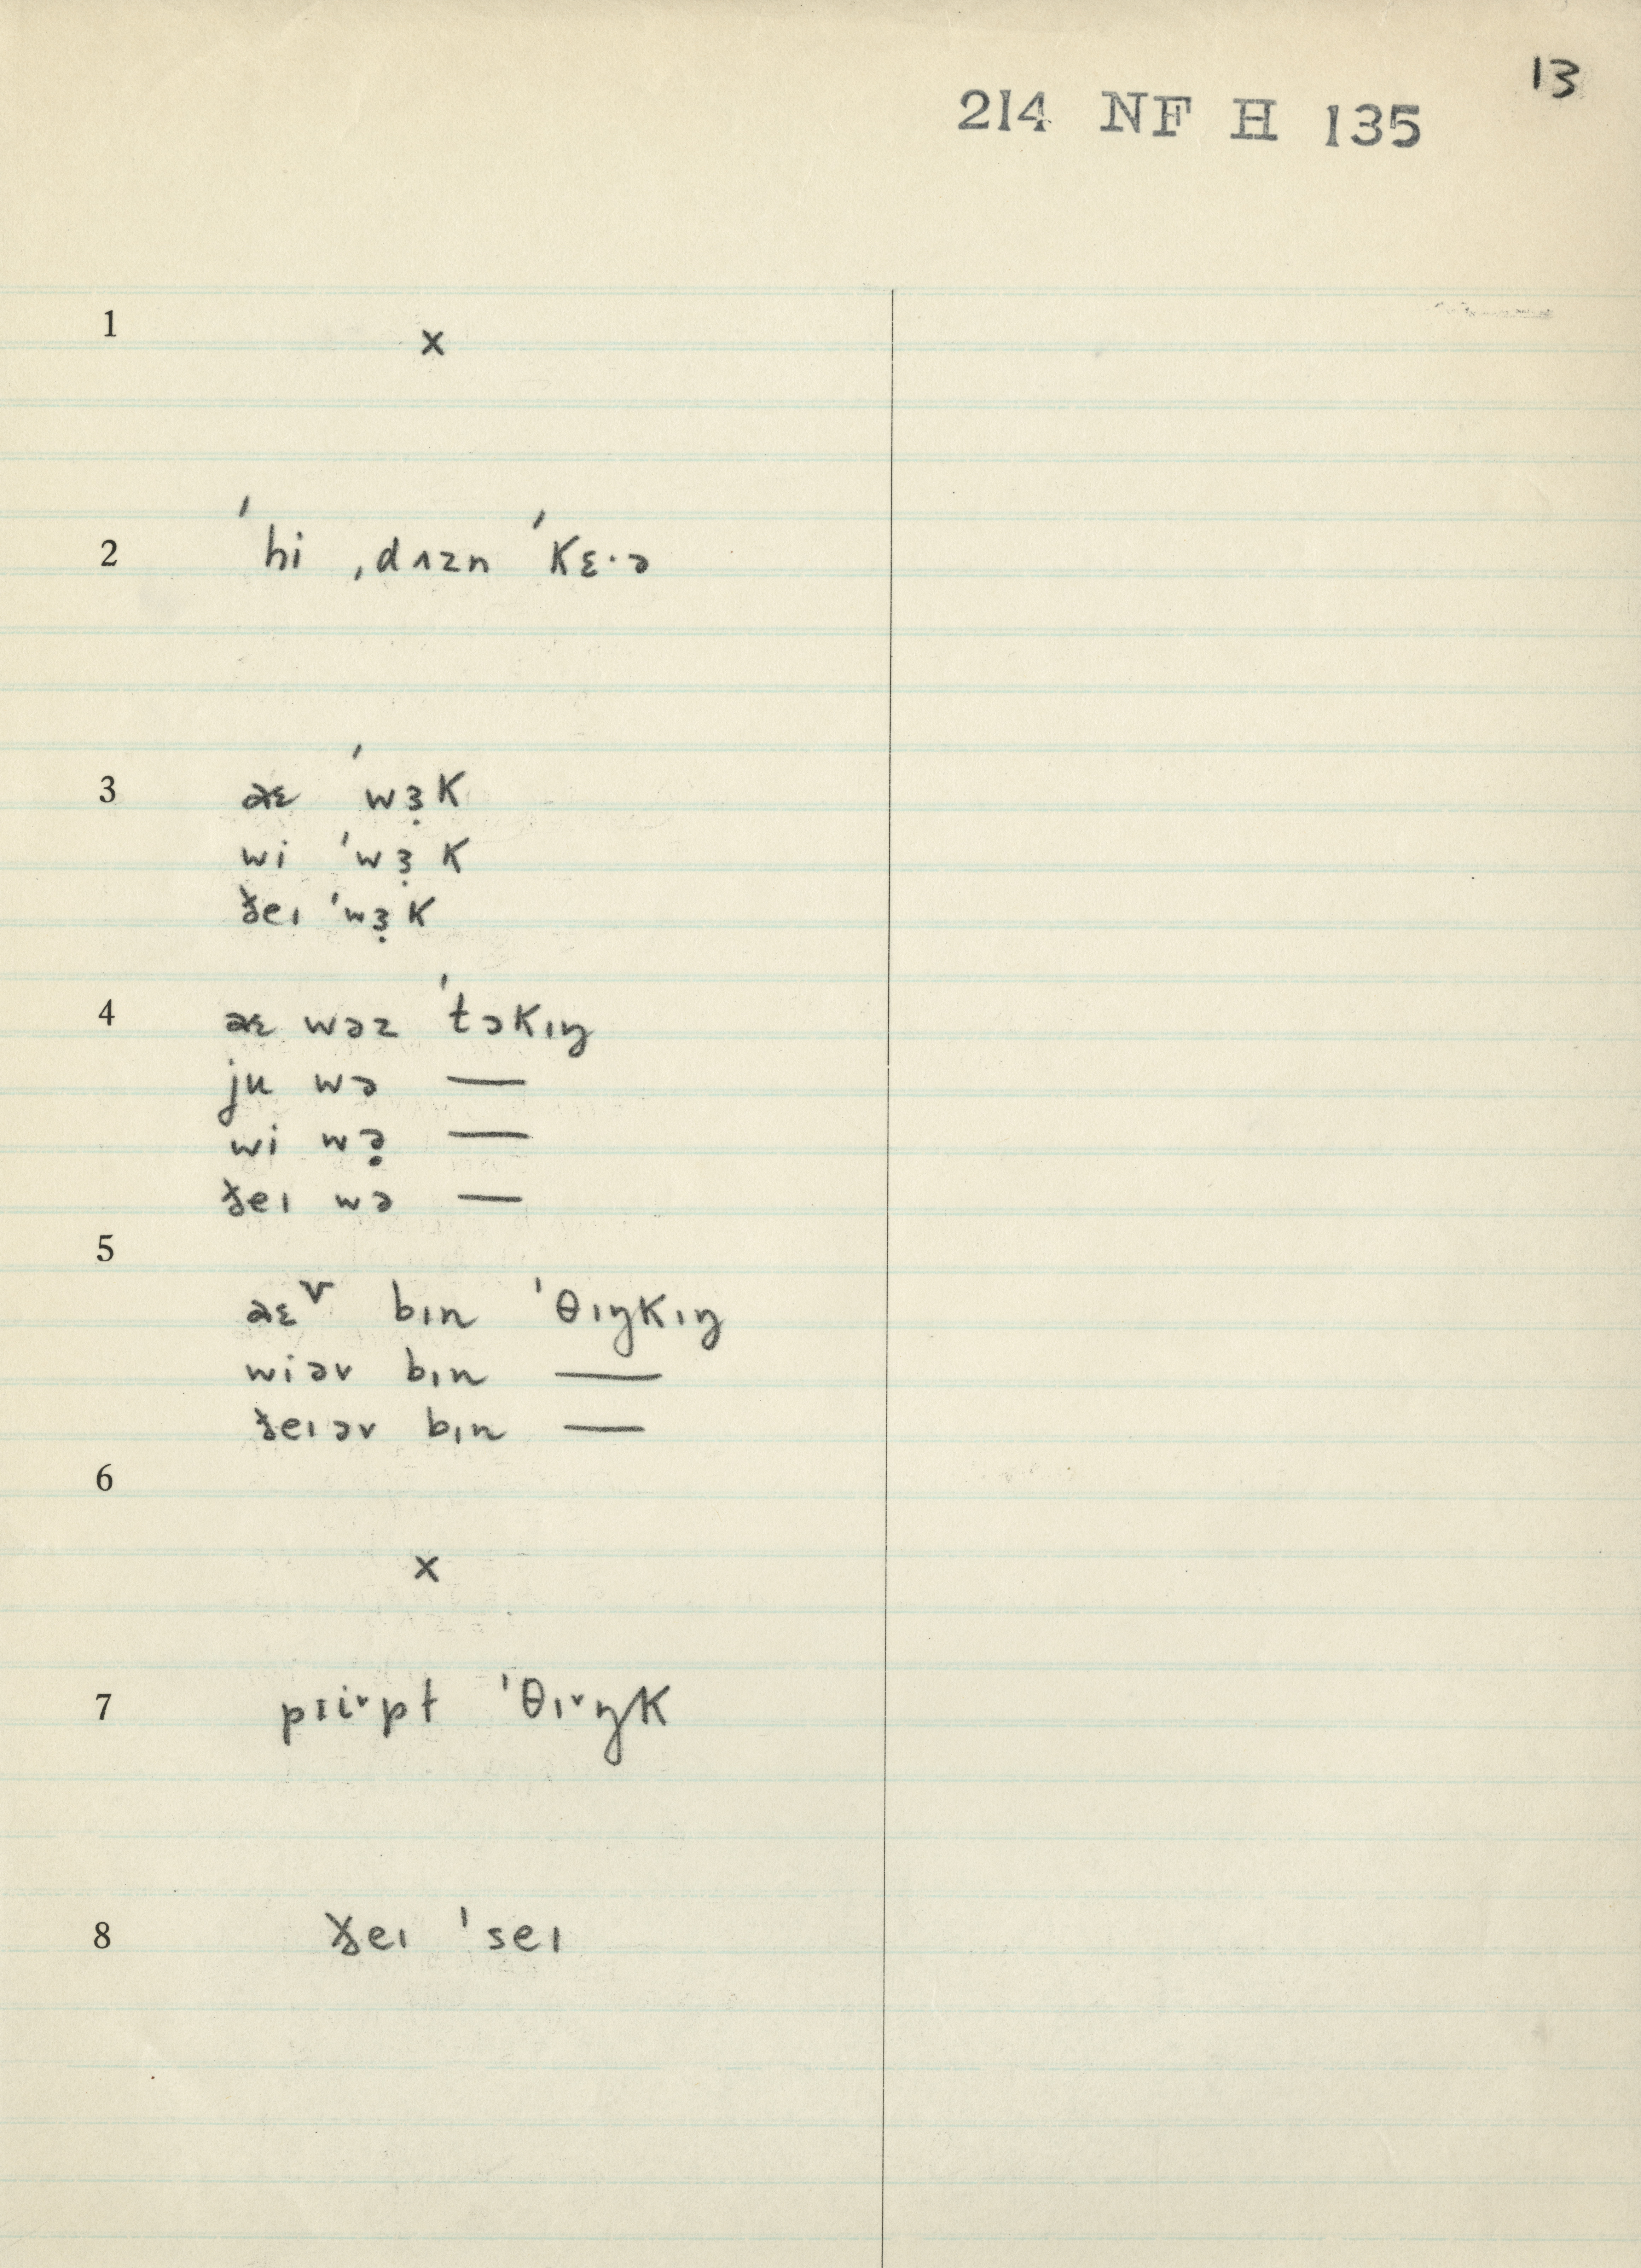 13
214 NF H 135
1 x
2 ˈhi ˌdʌzn ˈkɛ·ə
3 aɛ ˈwɜ̣k
wi ˈwɜ̣k
ðeɪ ˈwɜ̣k
4 aɛ wəz ˈtɔkɪŋ
ju wə —
wi wə̣ —
ðeɪ wə —
5
aɛv bɪn ˈθɪŋkɪŋ
wiəv bɪn —
ðeɪəv bɪn —
6
x
7 pɪi˅pt ˈθɪ˅ŋk
8 ðeɪ ˈseɪ